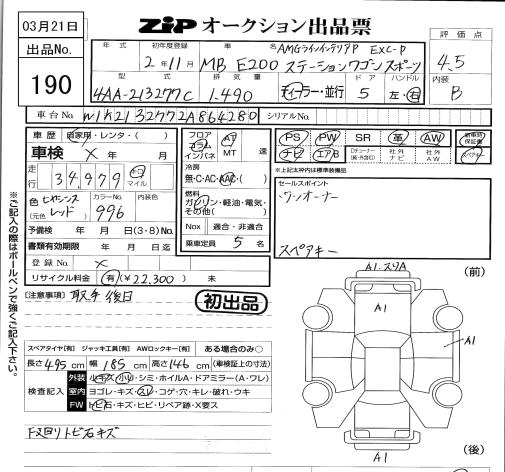 03月21日
ZIP オークション出品票
出品No.
190
年式
初年度登録
車名
AMGラインインテリアP EXC-P
2年11月 MB E200 ステーションワゴン スポーツ
型式
排気量
ドア
ハンドル
4AA-213277C
1.490
ディーラー・並行
5
左・右
評価点
4.5
内装
B
車台No.
W1K2132772A864280
シリアルNo.
車歴
自家用・レンタ・( )
車検 × 年 月
走行
34,979
キロ
マイル
色
(元色
レッド
)
カラーNo.
996
内装色
予備検 年 月 日(3・8)No.
書類有効期限 年 月 日迄
登録No. ×
リサイクル料金 有(¥22,300) 未
フロア
コラム
インパネ
AT
MT
速
冷房
無・C・AC・AAC・( )
燃料
ガソリン・軽油・電気・
その他( )
Nox 適合・非適合
乗車定員 5 名
PS PW SR 革 AW
ナビ エアB
社外
ナビ
社外
AW
新車時
保証書
スペアキー
*上記太枠内は標準装備品
セールスポイント
ワンオーナー
スペアキー
[注意事項] 取手後日
初出品
スペアタイヤ[有] ジャッキ工具[有] AWロックキー[有] ある場合のみ○
長さ 495 cm 幅 185 cm 高さ 146 cm (車検証上の寸法)
検査記入
外装 小キズ・小凹・シミ・ホイルA・ドアミラー(A・ワレ)
室内 ヨゴレ・キズ・スレ・コゲ・穴・キレ・破れ・ウキ
FW トビ石・キズ・ヒビ・リペア跡・X要ス
F廻りトビ石キズ
※ご記入の際はボールペンで強くご記入下さい。
A1.スリA
(前)
A1
A1
A1
(後)